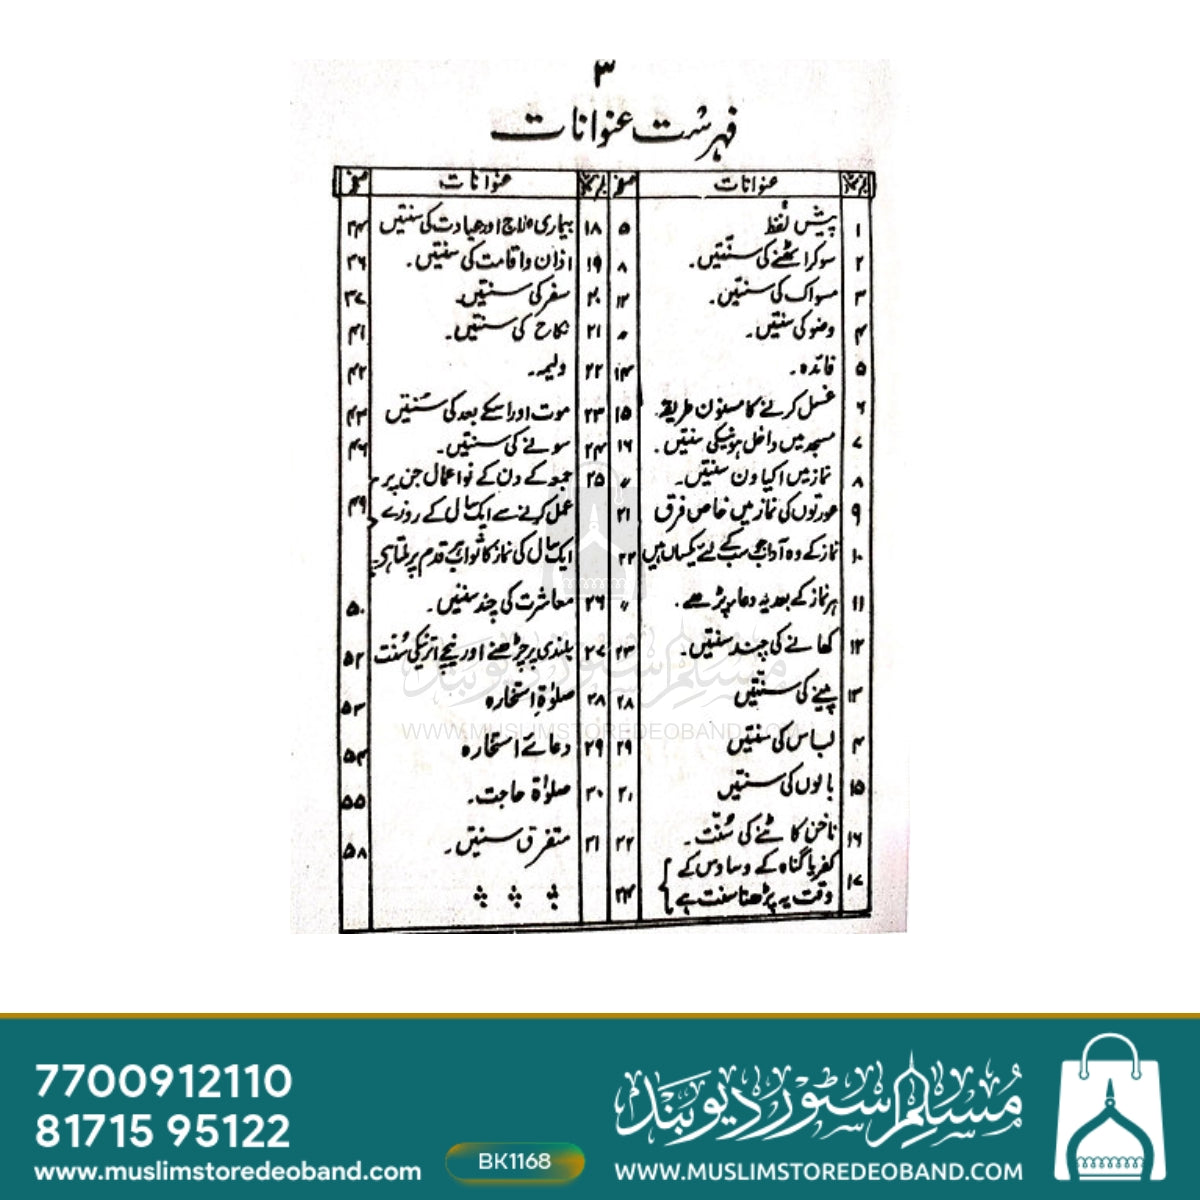 ۳
فہرست عنوانات
نمبر شمار عنوانات صفحہ
۱ پیش لفظ ۵
۲ سوکر اٹھنے کی سنتیں۔ ۸
۳ مسواک کی سنتیں۔ ۱۲
۴ وضو کی سنتیں۔ 〃
۵ فائدہ۔ ۱۴
۶ غسل کرنے کا مسنون طریقہ۔ ۱۵
۷ مسجد میں داخل ہونیکی سنتیں۔ ۱۶
۸ نماز میں اکیاون سنتیں۔ 〃
۹ عورتوں کی نماز میں خاص فرق ۲۱
۱۰ نماز کے وہ آداب جو سب کے لئے یکساں ہیں ۲۲
۱۱ ہر نماز کے بعد یہ دعاء پڑھے۔ 〃
۱۲ کھانے کی چند سنتیں۔ ۲۳
۱۳ پینے کی سنتیں ۲۸
۱۴ لباس کی سنتیں ۲۹
۱۵ بالوں کی سنتیں ۳۱
۱۶ ناخن کاٹنے کی سُنّت۔ ۳۲
۱۷ کفر یا گناہ کے وساوس کے
وقت یہ پڑھنا سنت ہے ۳۴
نمبر شمار عنوانات صفحہ
۱۸ بیماری علاج اور عیادت کی سنتیں ۳۴
۱۹ اذان و اقامت کی سنتیں۔ ۳۶
۲۰ سفر کی سنتیں۔ ۳۷
۲۱ نکاح کی سنتیں۔ ۴۱
۲۲ ولیمہ۔ ۴۲
۲۳ موت اور اسکے بعد کی سُنتیں ۴۳
۲۴ سونے کی سنتیں۔ ۴۶
۲۵ جمعہ کے دن کے نو اعمال جن پر
عمل کرنے سے ایک سال کے روزے ۴۹
ایک سال کی نماز کا ثواب ہر قدم پر ملتا ہے۔
۲۶ معاشرت کی چند سنتیں۔ ۵۰
۲۷ بلندی پر چڑھنے اور نیچے اترنیکی سُنّت ۵۲
۲۸ صلوٰۃ استخارہ ۵۳
۲۹ دعائے استخارہ ۵۴
۳۰ صلوٰۃ حاجت۔ ۵۵
۳۱ متفرق سنتیں۔ ۵۸
مسلم سٹور دیوبند
WWW.MUSLIMSTOREDEOBAND.COM
7700912110
81715 95122
www.muslimstoredeoband.com
BK1168
مُسلم سٹور دیوبند
WWW.MUSLIMSTOREDEOBAND.COM